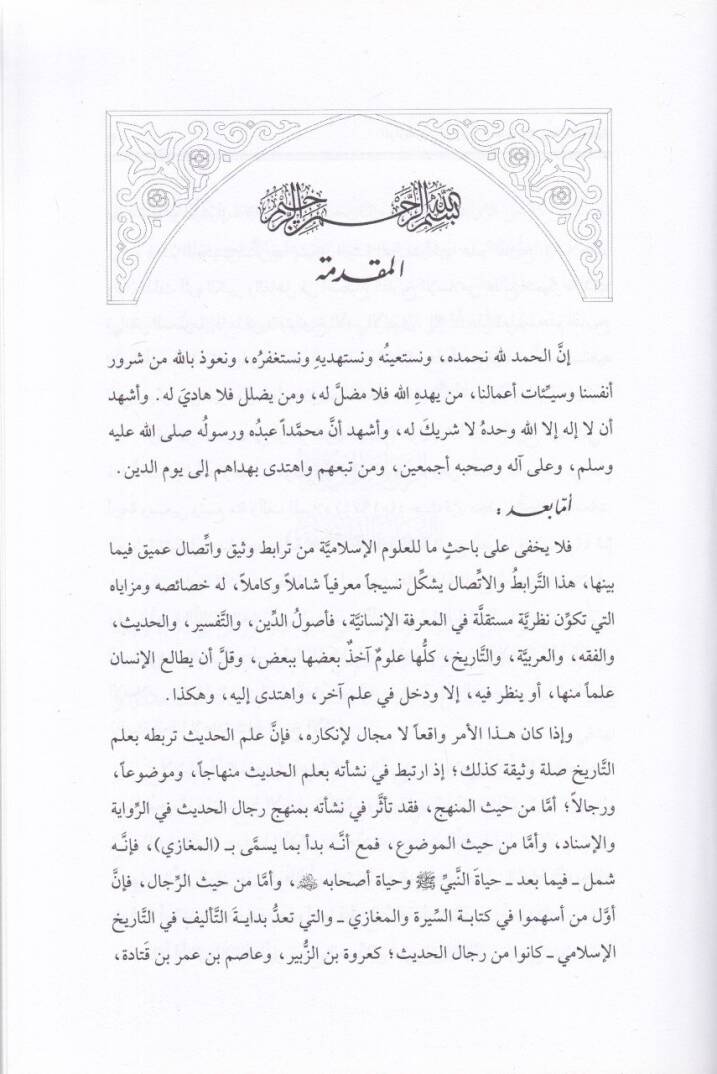 بسم الله الرحمن الرحيم
المقدمة
إنَّ الحمد لله نحمده، ونستعينُه ونستهديهِ ونستغفرُه، ونعوذ بالله من شرور
أنفسنا وسيِّئات أعمالنا، من يهدهِ الله فلا مضلَّ له، ومن يضلل فلا هاديَ له. وأشهد
أن لا إله إلا الله وحدهُ لا شريكَ له، وأشهد أنَّ محمَّداً عبدُه ورسولُه صلى الله عليه
وسلم، وعلى آله وصحبه أجمعين، ومن تبعهم واهتدى بهداهم إلى يوم الدين.
أمّا بعد:
فلا يخفى على باحثٍ ما للعلوم الإسلاميَّة من ترابط وثيق واتِّصال عميق فيما
بينها، هذا التَّرابطُ والاتِّصال يشكِّل نسيجاً معرفياً شاملاً وكاملاً، له خصائصه ومزاياه
التي تكوِّن نظريَّة مستقلَّة في المعرفة الإنسانيَّة، فأصولُ الدِّين، والتَّفسير، والحديث،
والفقه، والعربيَّة، والتَّاريخ، كلُّها علومٌ آخذٌ بعضها ببعض، وقلَّ أن يطالع الإنسان
علماً منها، أو ينظر فيه، إلا ودخل في علم آخر، واهتدى إليه، وهكذا.
وإذا كان هذا الأمر واقعاً لا مجال لإنكاره، فإنَّ علم الحديث تربطه بعلم
التَّاريخ صلة وثيقة كذلك؛ إذ ارتبط في نشأته بعلم الحديث منهاجاً، وموضوعاً،
ورجالاً؛ أمَّا من حيث المنهج، فقد تأثَّر في نشأته بمنهج رجال الحديث في الرِّواية
والإسناد، وأمَّا من حيث الموضوع، فمع أنَّه بدأ بما يسمَّى بـ (المغازي)، فإنَّه
شمل ـ فيما بعد ـ حياةَ النَّبيِّ ﷺ وحياة أصحابه ﷺ، وأمَّا من حيث الرِّجال، فإنَّ
أوَّل من أسهموا في كتابة السِّيرة والمغازي ـ والتي تعدُّ بدايةَ التَّأليف في التَّاريخ
الإسلامي ـ كانوا من رجال الحديث؛ كعروة بن الزُّبير، وعاصم بن عمر بن قَتادة،